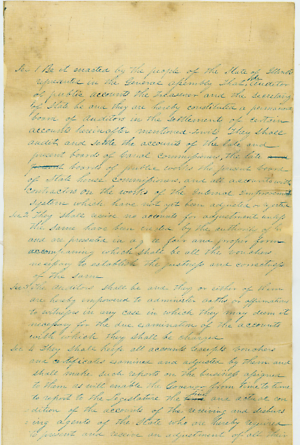 Sec 1 Be it enacted by the people of the State of
represented in the General Assembly That Auditor
of public accounts the Treasurer and the Secretary
of State be and they are hereby constituted a
board of Auditors in the settlements of certain
accounts hereinafter mentioned They shall
audit and settle the accounts of the late and
present boards of Canal commissioners, the late
boards of public works the present board
of State house Commissioners, and all accounts
contractors on the works of the internal improvement
system which have not yet been adjusted
Sec 2 They shall no accounts for adjustment unless
the same have been by the authority of
and are presented in a form
accompanied which shall be all the vouchers
necessary to establish the justness and correctness
of the same
The auditors shall be and they or either of them
are hereby empowered to administer oaths or affirmations
to witnesses in any case in which they may deem it
necessary for the due examination of the accounts
with which they shall be charged
They shall keep all accounts vouchers
and certificates examined and adjusted by them and
shall make such reports on the business assigned
to them as will enable the Governor from time to time
to report to the Legislature the and actual con
dition of the accounts of the receiving and disburs
ing agents of the State who are hereby required
to present and receive an adjustment of all